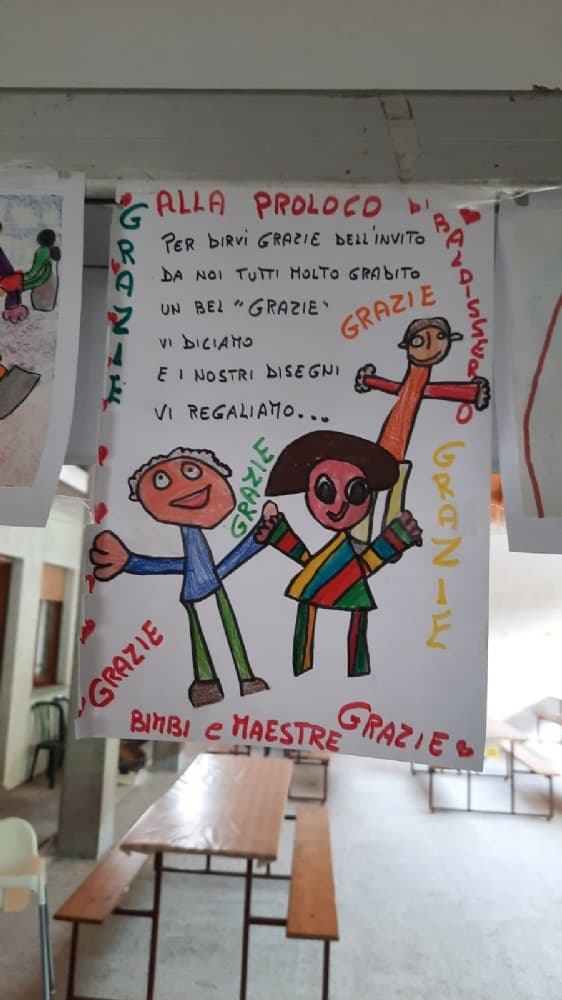 ALLA PROLOCO DI
BALDISSERO
GRAZIE
PER DIRVI GRAZIE DELL'INVITO
DA NOI TUTTI MOLTO GRADITO
UN BEL "GRAZIE"
VI DICIAMO
E I NOSTRI DISEGNI
VI REGALIAMO...
GRAZIE
GRAZIE
GRAZIE
GRAZIE
BIMBI e MAESTRE
GRAZIE